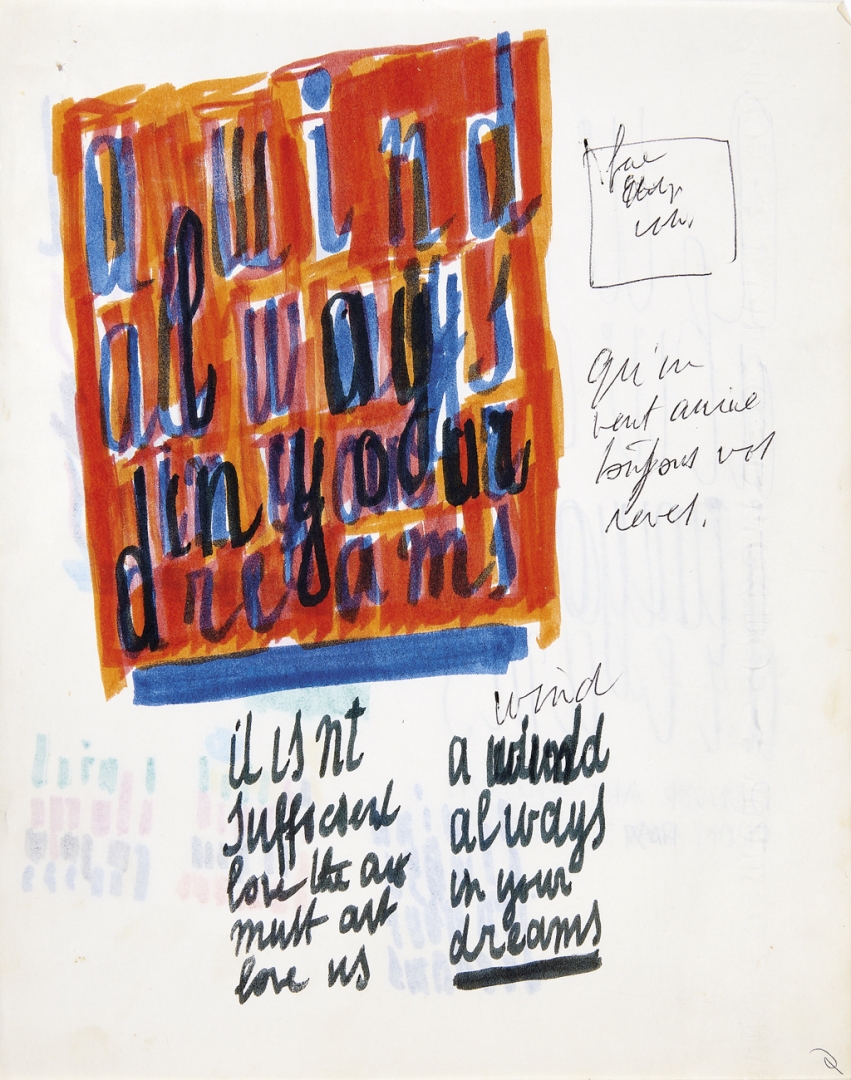 a wind
always
in your
dreams
qu'un
vent arrive
toujours vos
reves.
wind
il isnt
sufficient
love the art
must art
love us
a wind
always
in your
dreams